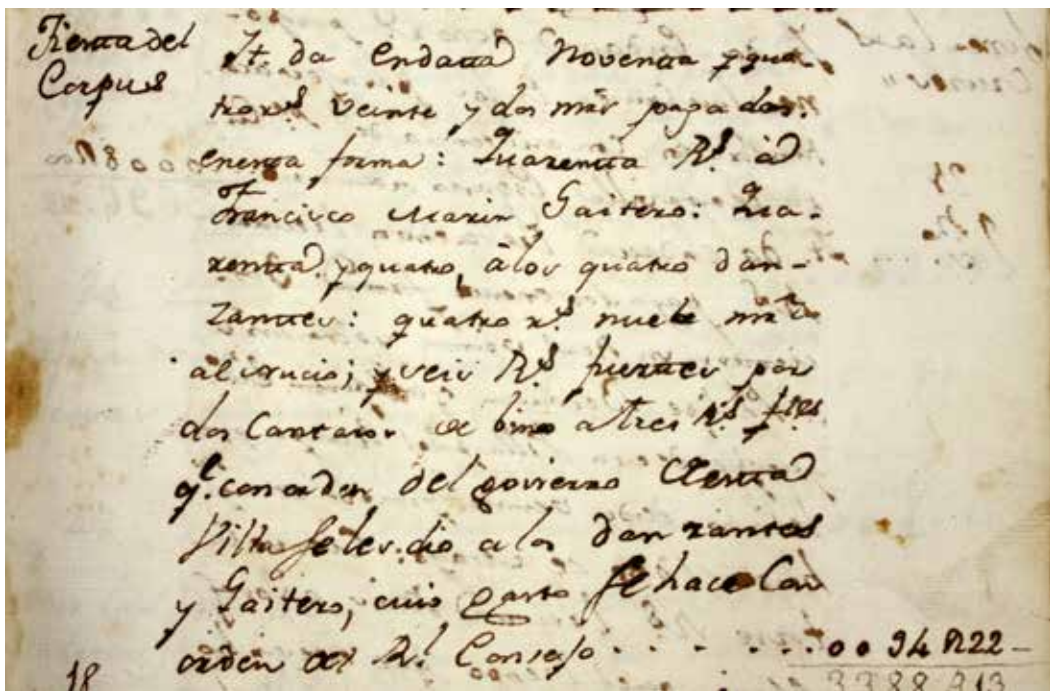 Fiesta del
Corpus
It. da endatta Noventa y qua-
tro rs. veinte y dos mrs pagados.
enesta forma: Quarenta Rs. a
Francisco Marin Gaitero: Qua-
renta y quatro, a los quatro dan-
zantes: quatro rs. nuebe mrs
al           y seis Rs. fuertes por
dos Cantaros de bino a tres Rs. ftes
qe. con orden del govierno de esta
Villa se les dio a los danzantes
y Gaitero, cuio gasto se hace con
orden del Rl. Consejo . . . . . . . 0 0 94 R22
18